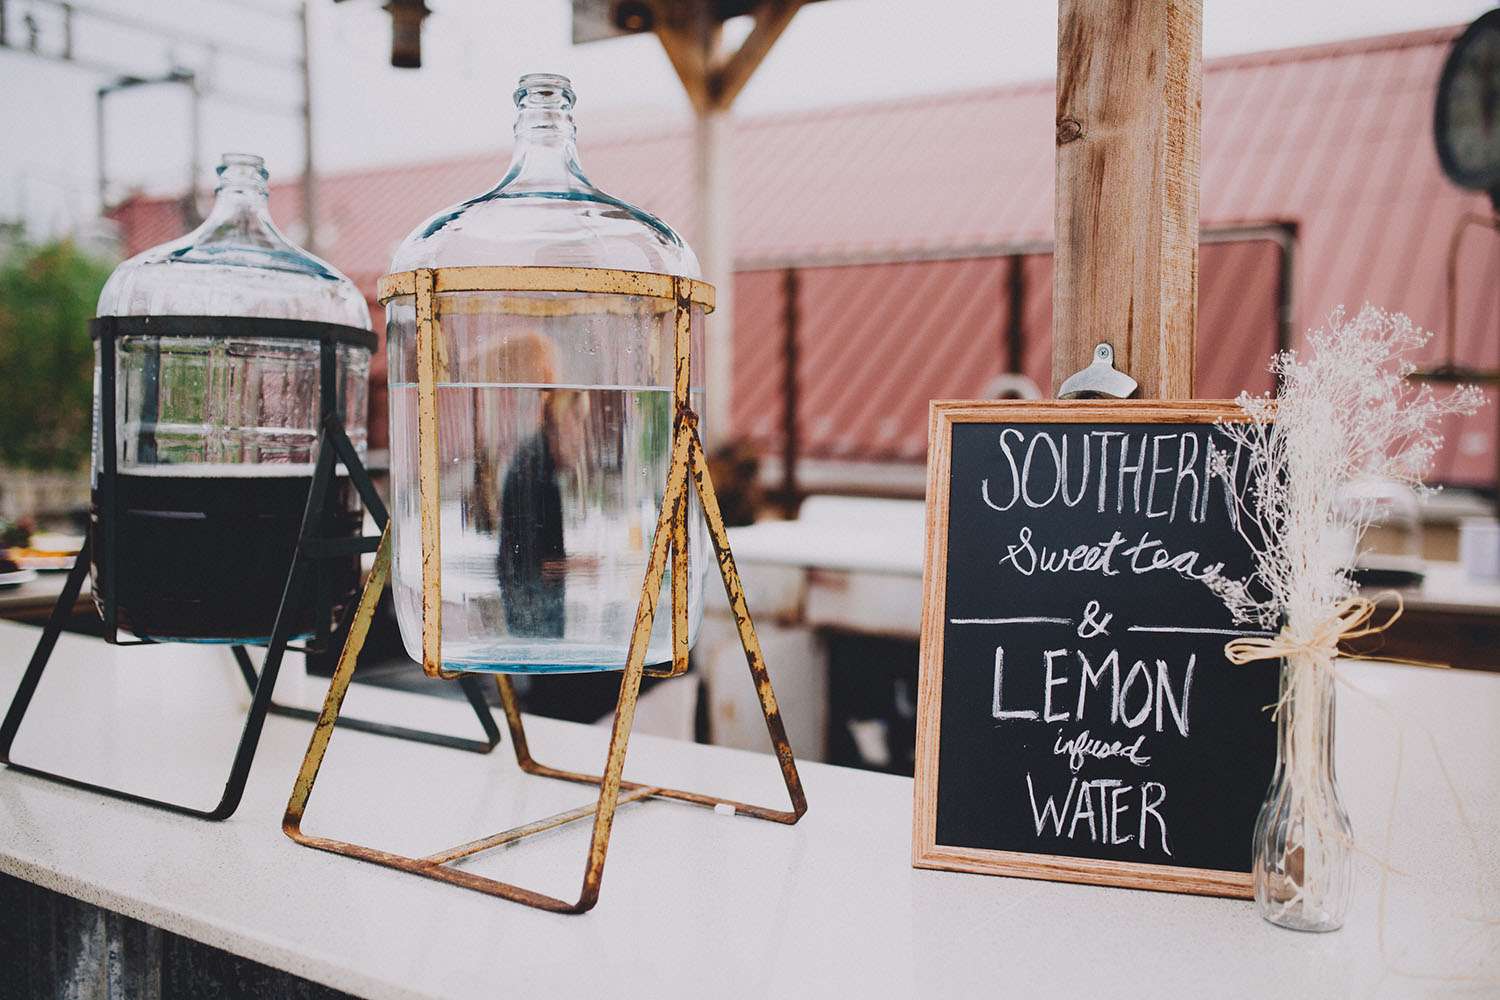 SOUTHERN
Sweet tea
&
LEMON
infused
WATER